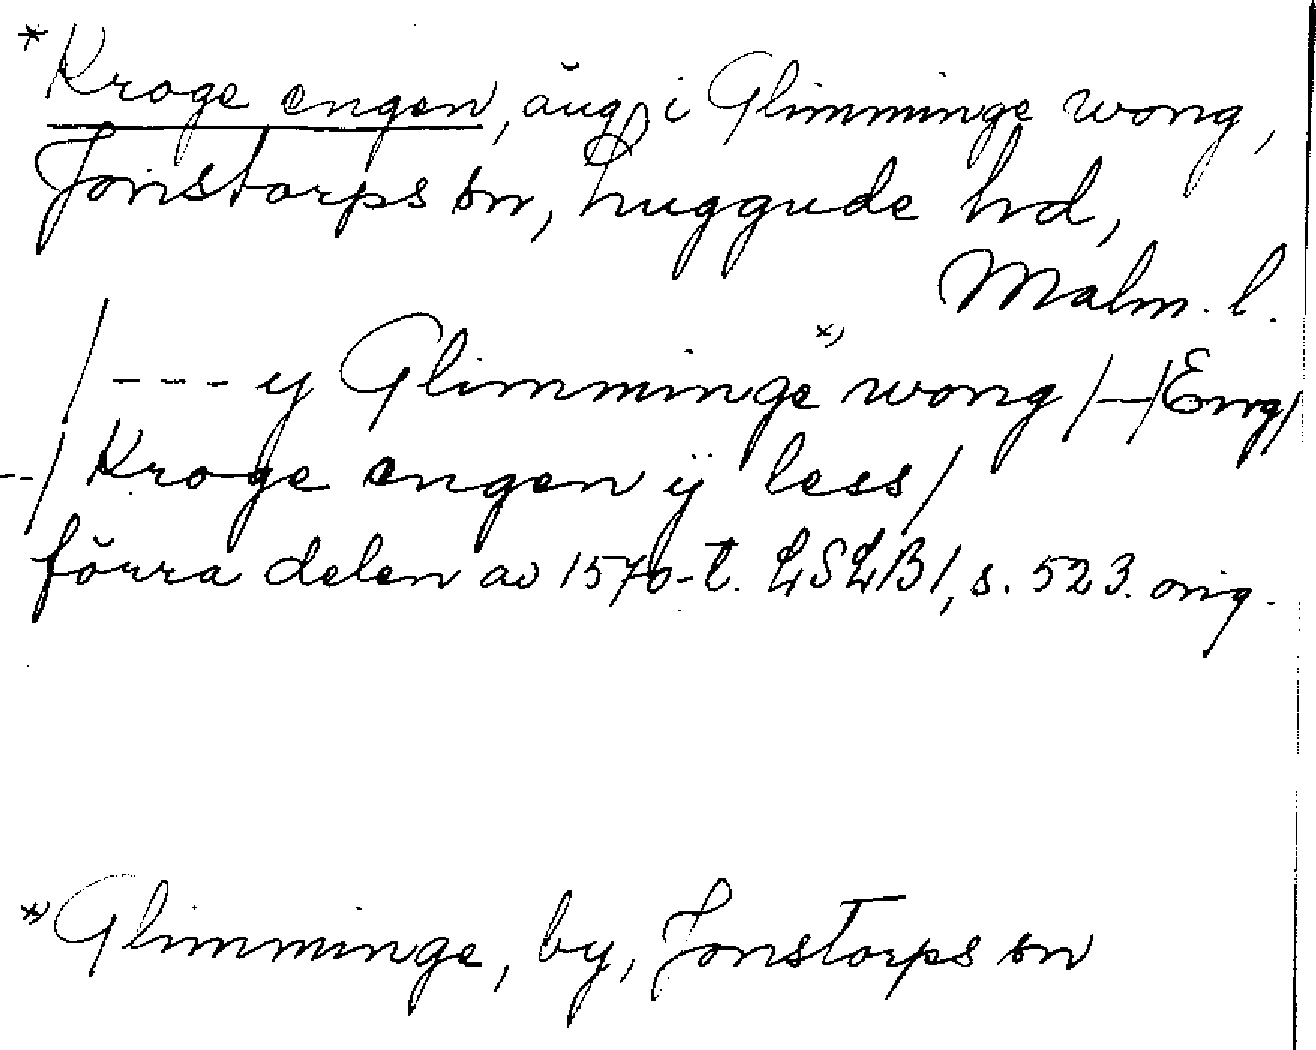 *Kroge engen, äng i Glimminge wong,
Jonstorps sn, Luggude hd,
Malm. l.
/--- y Glimminge *) wong /—/ Eng/
--/ Kroge engen ÿ less/
förra delen av 1570-t. LSLB1, s. 523. orig.
*) Glimminge, by, Jonstorps sn